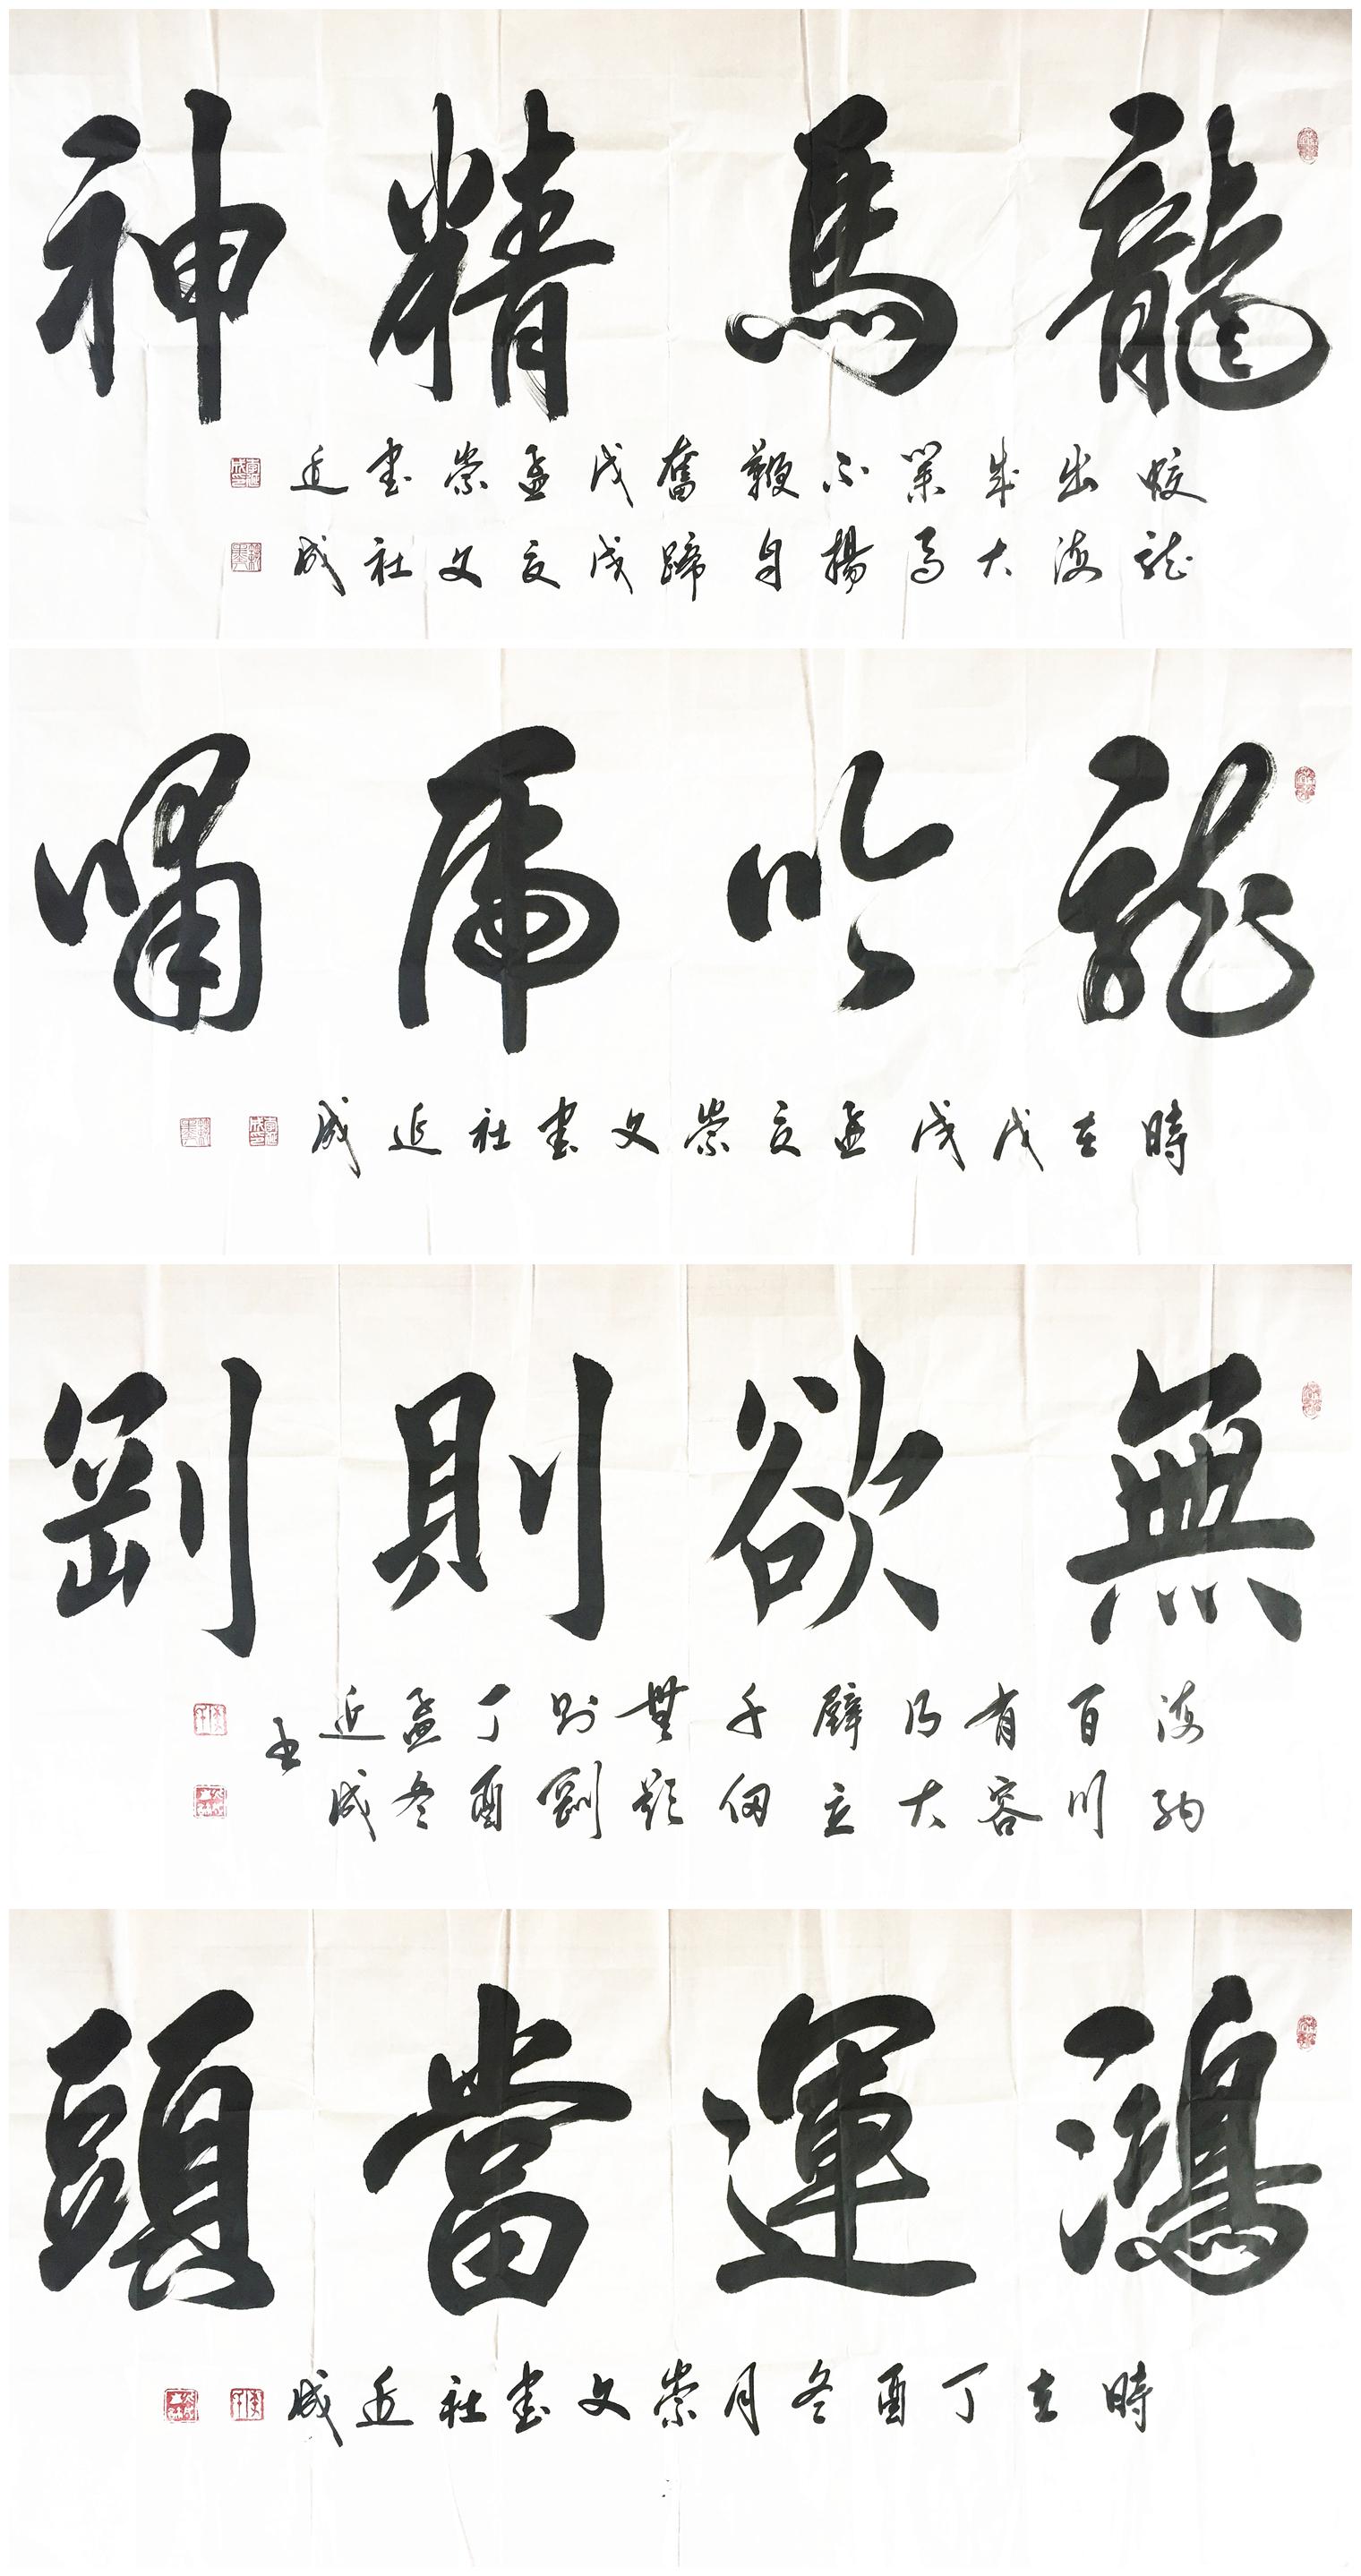 龍馬精神
蛟龍出海成大業馬不揚鞭自奮蹄戊戌孟夏崇文書社近成
龍吟虎嘯
時在戊戌孟夏崇文書社近成
無欲則剛
海納百川有容乃大壁立千仞無欲則剛丁酉孟冬近成
鴻運當頭
時在丁酉冬月崇文書社近成